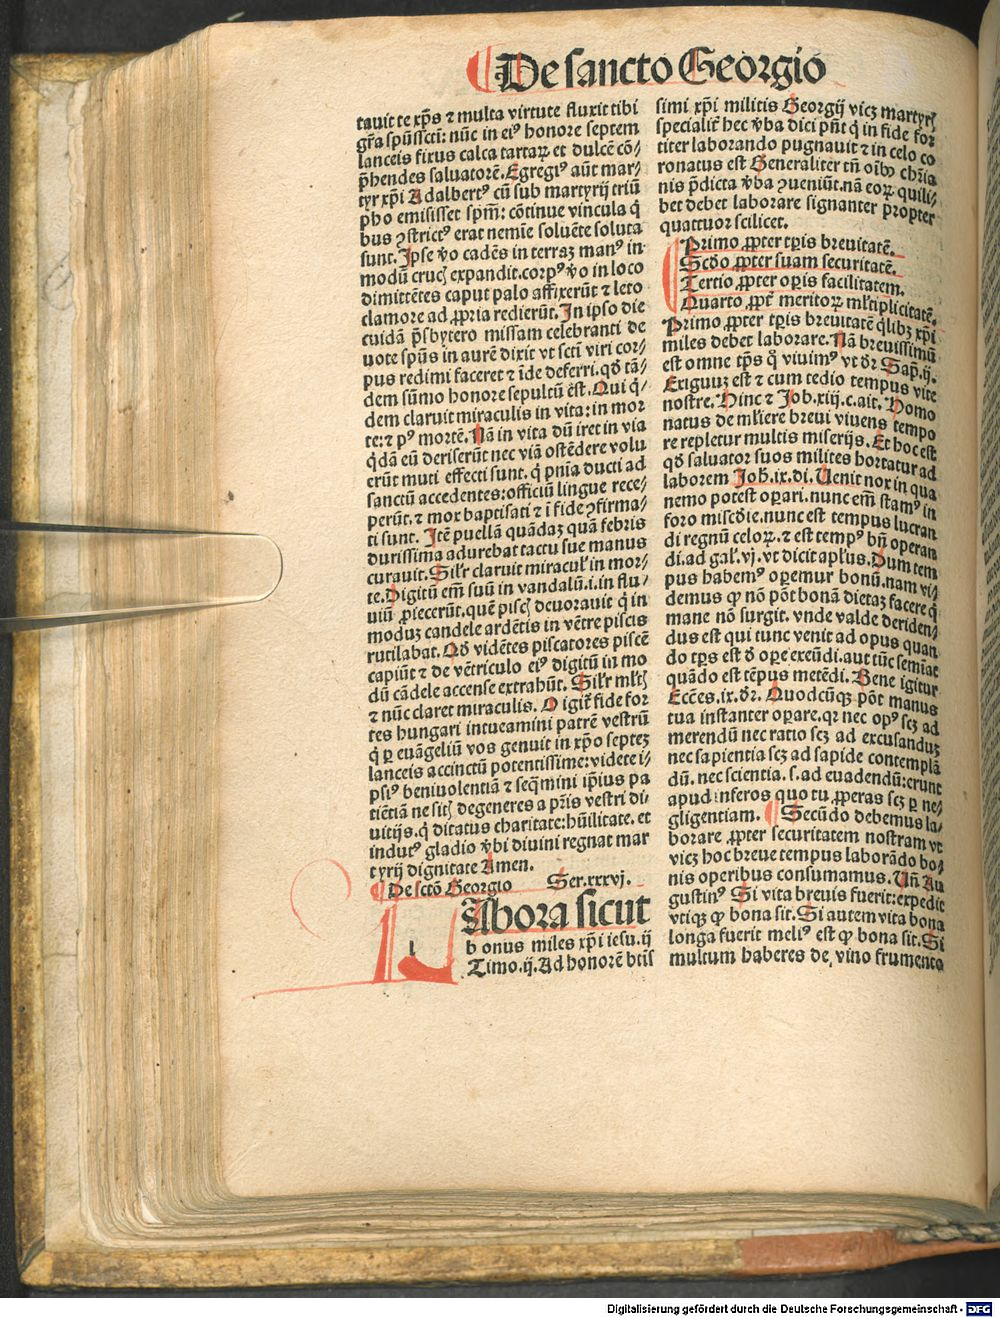 De sancto Georgio
tauit te xp̄s ⁊ multa virtute fluxit tibi
gr̄a sp̄ussctī: nūc in ei⁹ honore septem
lanceis fixus calca tartaꝝ et dulcē cō-
p̄hendes saluatorē. Egregi⁹ aūt mar-
tyr xp̄i Adalbert⁹ cū sub martyrij triū
pho emisisset spm̄: cōtinue vincula q̄
bus ꝯstrict⁹ erat nemīe soluēte soluta
sunt. Ipse v̄o cadēs in terraꝫ man⁹ in
modū crucꝭ expandit. corp⁹ v̄o in loco
dimittētes caput palo affixerūt ⁊ leto
clamore ad ꝓpria redierūt. In ipso die
cuidā p̄sbytero missam celebranti de
uote spūs in aurē dixit vt sctī viri cor-
pus redimi faceret ⁊ īde deferri. qd̄ tā-
dem sūmo honore sepultū ēst. Qui q̇-
dem claruit miraculis in vita: in mor
te: ⁊ p⁹ mortē. Nā in vita dū iret in via
q̇dā eū deriserūt nec viā ostēdere volu
erūt muti effecti sunt. q̄ pnīa ducti ad
sanctū accedentes: officiū lingue rece-
perūt. ⁊ mox baptisati ⁊ ī fide ꝯfirma-
ti sunt. Itē puellā quādaꝫ quā febris
durissima adurebat tactu sue manus
curauit. Sil'r claruit miracul' in mor-
te. Digitū em̄ suū in vandalū. i. in flu-
uiū ꝓiecerūt. quē piscꝭ deuorauit q̇ in
moduꝫ candele ardētis in vētre piscis
rutilabat. Qd̄ vidētes piscatores piscē
capiūt ⁊ de vētriculo ei⁹ digitū in mo
dū cādele accense extrahūt. Sil'r ml'tꝭ
⁊ nūc claret miraculis. O igit̄ fide for
tes hungari intueamini patrē vestrū
q̇ ꝑ euāgeliū vos genuit in xp̄o septeꝫ
lanceis accinctū potentissime: videte i-
psi⁹ beniuolentiā ⁊ seq̄mini ip̄ius pa
tiētiā ne sitꝭ degeneres a p̄ris vestri di-
uitijs. q̇ ditatus charitate: hūilitate. et
indut⁹ gladio v̄bi diuini regnat mar
tyrij dignitate Amen.
De sctō Georgio Ser. xxxvj.
l Abora sicut
bonus miles xp̄i iesu. ij
Timo. ij. Ad honorē btīs
simi xp̄i militis Georgij vicꝫ martyrꝭ
specialit̄ hec v̄ba dici pn̄t q̇ in fide for
titer laborando pugnauit ⁊ in celo co
ronatus est Generaliter tn̄ oīb⁹ chr̄ia
nis p̄dicta v̄ba ꝯueniūt. nā eoꝝ quili-
bet debet laborare signanter propter
quattuor scilicet.
Primo ꝓpter tp̄is breuitatē.
Scdo ꝓpter suam securitatē.
Tertio ꝓpter oꝑis facilitatem.
Quarto ꝓpt̄ meritoꝝ ml'tiplicitatē.
Primo ꝓpter tp̄is breuitatē q̇libꝫ xp̄i
miles debet laborare. Nā breuissimū
est omne tp̄s q̊ viuim⁹ vt d̄r Sap̄. ij.
Exiguuꝫ est ⁊ cum tedio tempus vite
nostre. Hinc ⁊ Job. xiiij. c. ait. Homo
natus de ml'iere breui viuens tempo
re repletur multis miserijs. Et hoc est
qd̄ saluator suos milites hortatur ad
laborem Joh̄. ix. di. Uenit nox in qua
nemo potest oꝑari. nunc em̄ stam⁹ in
foro miscd̄ie. nunc est tempus lucran
di regnū celoꝝ. ⁊ est temp⁹ bn̄ operan
di. ad gal'. vj. vt dicit apl'us. Dum tem
pus habem⁹ oꝑemur bonū. nam vi-
demus ꝙ nō pōt bonā dietaꝫ facere q̇
mane nō surgit. vnde valde deriden-
dus est qui tunc venit ad opus quan
do tp̄s est d̄ oꝑe exeūdi. aut tūc semīat
quādo est tēpus metēdi. Bene igitur
Ecc̄es. ix. d̄r. Quodcūqꝫ pōt manus
tua instanter oꝑare. qꝛ nec op⁹ scꝫ ad
merendū nec ratio scꝫ ad excusanduꝫ
nec sapientia scꝫ ad sapide contemplā
dū. nec scientia. s. ad euadendū: erunt
apud inferos quo tu ꝓperas scꝫ ꝑ ne-
gligentiam. Secūdo debemus la-
borare ꝓpter securitatem nostram vt
vicꝫ hoc breue tempus laborādo bo-
nis operibus consumamus. Un̄ Au
gustin⁹ Si vita breuis fuerit: expedit
vtiqꝫ ꝙ bona sit. Si autem vita bona
longa fuerit meli⁹ est ꝙ bona sit. Si
multum haberes de, vino frumento
Digitalisierung gefördert durch die Deutsche Forschungsgemeinschaft - DFG